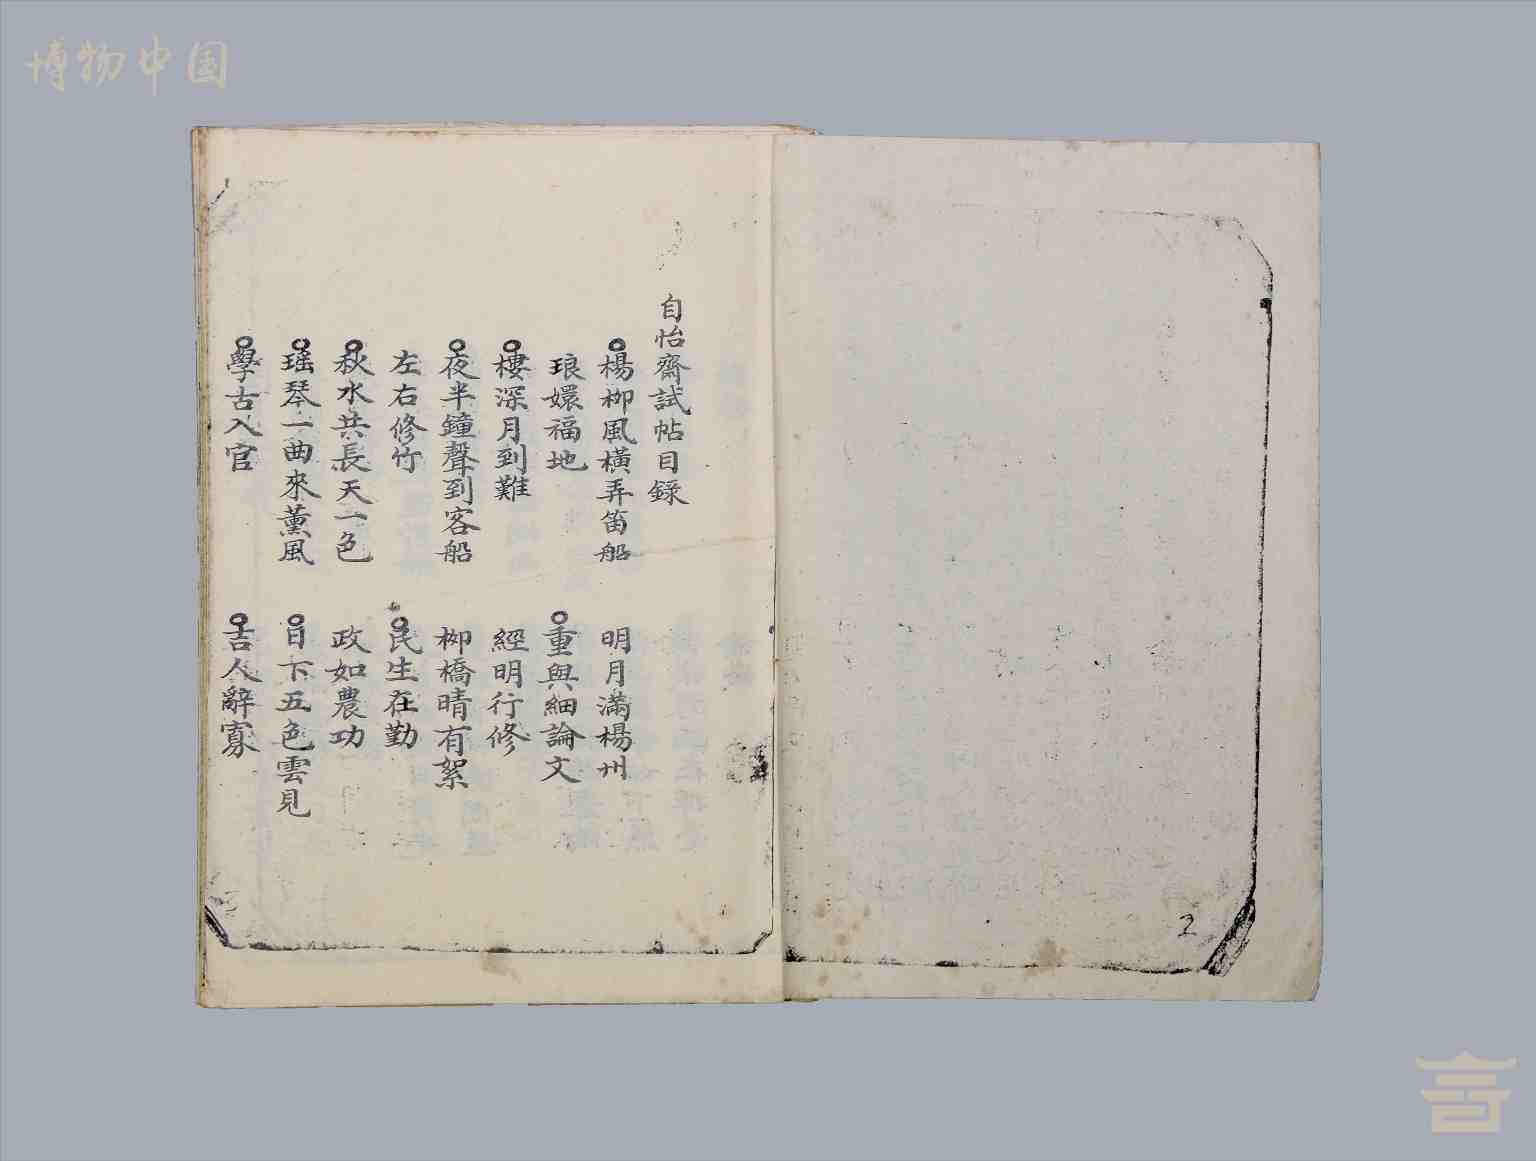 博物中国
自怡齋試帖目錄
楊柳風橫弄笛船
明月滿楊州
琅嬛福地
重與細論文
樓深月到難
經明行修
夜半鐘聲到客船
柳橋晴有絮
左右修竹
民生在勤
秋水共長天一色
政如農功
瑶琴一曲來薰風
日下五色雲見
學古入官
吉人辭寡
2